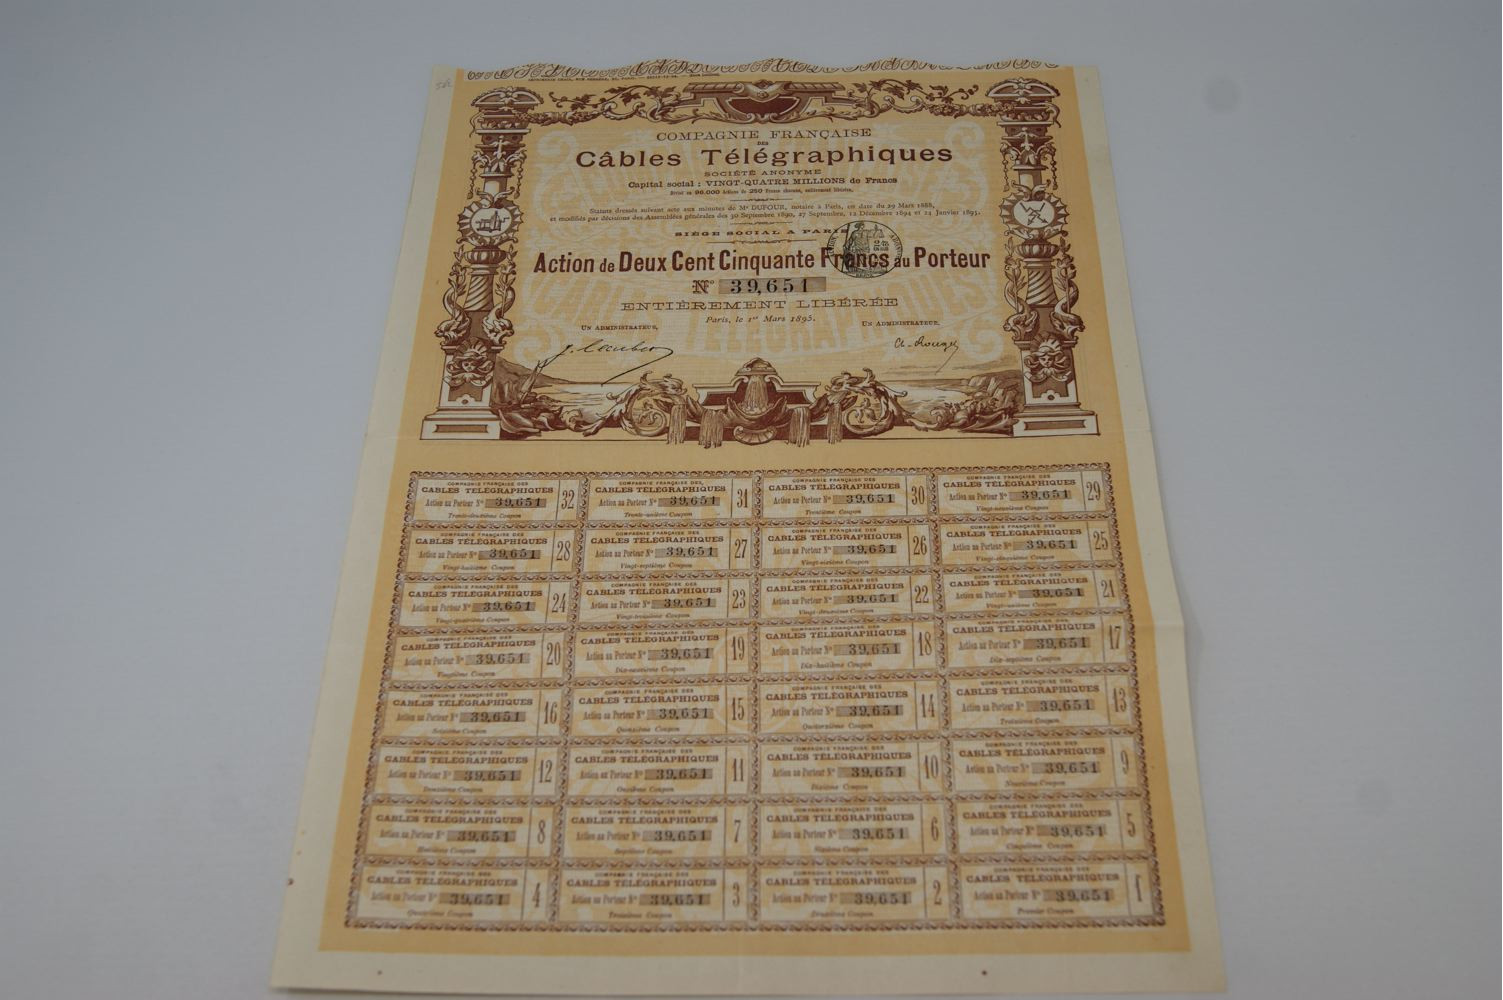 COMPAGNIE FRANÇAISE
DES
Câbles Télégraphiques
SOCIÉTÉ ANONYME
Capital social : VINGT-QUATRE MILLIONS de Francs
Divisé en 96.000 Actions de 250 Francs chacune, entièrement libérées.
Statuts dressés suivant acte aux minutes de Me DUFOUR, notaire à Paris, en date du 29 Mars 1888,
et modifiés par décisions des Assemblées générales des 30 Septembre 1890, 27 Septembre, 12 Décembre 1894 et 24 Janvier 1895.
SIÈGE SOCIAL A PARIS
Action de Deux Cent Cinquante Francs au Porteur
No 39,651
ENTIÈREMENT LIBÉRÉE
Paris, le 1er Mars 1895.
UN ADMINISTRATEUR, UN ADMINISTRATEUR,
COMPAGNIE FRANÇAISE DES COMPAGNIE FRANÇAISE DES COMPAGNIE FRANÇAISE DES COMPAGNIE FRANÇAISE DES
CABLES TÉLÉGRAPHIQUES CABLES TÉLÉGRAPHIQUES CABLES TÉLÉGRAPHIQUES CABLES TÉLÉGRAPHIQUES
Action au Porteur No 39,651 32 Action au Porteur No 39,651 31 Action au Porteur No 39,651 30 Action au Porteur No 39,651 29
Trente-deuxième Coupon Trente-unième Coupon Trentième Coupon Vingt-neuvième Coupon
COMPAGNIE FRANÇAISE DES COMPAGNIE FRANÇAISE DES COMPAGNIE FRANÇAISE DES COMPAGNIE FRANÇAISE DES
CABLES TÉLÉGRAPHIQUES CABLES TÉLÉGRAPHIQUES CABLES TÉLÉGRAPHIQUES CABLES TÉLÉGRAPHIQUES
Action au Porteur No 39,651 28 Action au Porteur No 39,651 27 Action au Porteur No 39,651 26 Action au Porteur No 39,651 25
Vingt-huitième Coupon Vingt-septième Coupon Vingt-sixième Coupon Vingt-cinquième Coupon
COMPAGNIE FRANÇAISE DES COMPAGNIE FRANÇAISE DES COMPAGNIE FRANÇAISE DES COMPAGNIE FRANÇAISE DES
CABLES TÉLÉGRAPHIQUES CABLES TÉLÉGRAPHIQUES CABLES TÉLÉGRAPHIQUES CABLES TÉLÉGRAPHIQUES
Action au Porteur No 39,651 24 Action au Porteur No 39,651 23 Action au Porteur No 39,651 22 Action au Porteur No 39,651 21
Vingt-quatrième Coupon Vingt-troisième Coupon Vingt-deuxième Coupon Vingt-unième Coupon
COMPAGNIE FRANÇAISE DES COMPAGNIE FRANÇAISE DES COMPAGNIE FRANÇAISE DES COMPAGNIE FRANÇAISE DES
CABLES TÉLÉGRAPHIQUES CABLES TÉLÉGRAPHIQUES CABLES TÉLÉGRAPHIQUES CABLES TÉLÉGRAPHIQUES
Action au Porteur No 39,651 20 Action au Porteur No 39,651 19 Action au Porteur No 39,651 18 Action au Porteur No 39,651 17
Vingtième Coupon Dix-neuvième Coupon Dix-huitième Coupon Dix-septième Coupon
COMPAGNIE FRANÇAISE DES COMPAGNIE FRANÇAISE DES COMPAGNIE FRANÇAISE DES COMPAGNIE FRANÇAISE DES
CABLES TÉLÉGRAPHIQUES CABLES TÉLÉGRAPHIQUES CABLES TÉLÉGRAPHIQUES CABLES TÉLÉGRAPHIQUES
Action au Porteur No 39,651 16 Action au Porteur No 39,651 15 Action au Porteur No 39,651 14 Action au Porteur No 39,651 13
Seizième Coupon Quinzième Coupon Quatorzième Coupon Treizième Coupon
COMPAGNIE FRANÇAISE DES COMPAGNIE FRANÇAISE DES COMPAGNIE FRANÇAISE DES COMPAGNIE FRANÇAISE DES
CABLES TÉLÉGRAPHIQUES CABLES TÉLÉGRAPHIQUES CABLES TÉLÉGRAPHIQUES CABLES TÉLÉGRAPHIQUES
Action au Porteur No 39,651 12 Action au Porteur No 39,651 11 Action au Porteur No 39,651 10 Action au Porteur No 39,651 9
Douzième Coupon Onzième Coupon Dixième Coupon Neuvième Coupon
COMPAGNIE FRANÇAISE DES COMPAGNIE FRANÇAISE DES COMPAGNIE FRANÇAISE DES COMPAGNIE FRANÇAISE DES
CABLES TÉLÉGRAPHIQUES CABLES TÉLÉGRAPHIQUES CABLES TÉLÉGRAPHIQUES CABLES TÉLÉGRAPHIQUES
Action au Porteur No 39,651 8 Action au Porteur No 39,651 7 Action au Porteur No 39,651 6 Action au Porteur No 39,651 5
Huitième Coupon Septième Coupon Sixième Coupon Cinquième Coupon
COMPAGNIE FRANÇAISE DES COMPAGNIE FRANÇAISE DES COMPAGNIE FRANÇAISE DES COMPAGNIE FRANÇAISE DES
CABLES TÉLÉGRAPHIQUES CABLES TÉLÉGRAPHIQUES CABLES TÉLÉGRAPHIQUES CABLES TÉLÉGRAPHIQUES
Action au Porteur No 39,651 4 Action au Porteur No 39,651 3 Action au Porteur No 39,651 2 Action au Porteur No 39,651 1
Quatrième Coupon Troisième Coupon Deuxième Coupon Premier Coupon